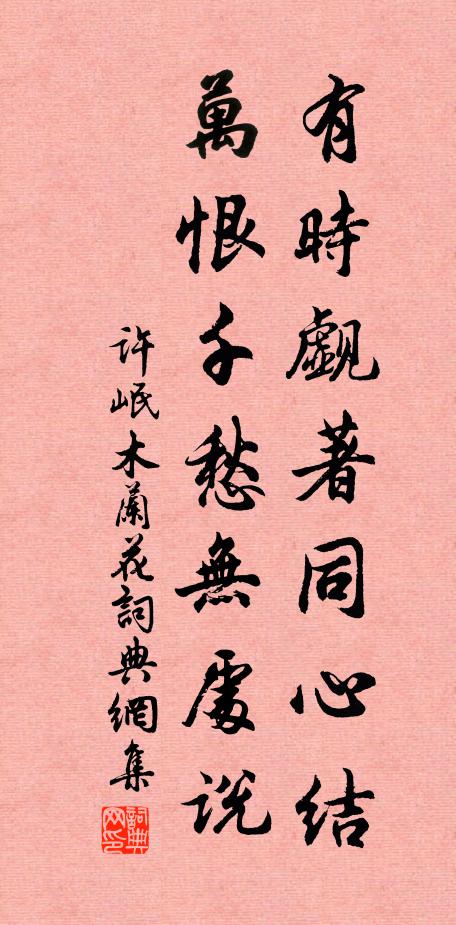 有時覷著同心結
萬恨千愁無處說
許岷木蘭花詞典網集
詞典網印